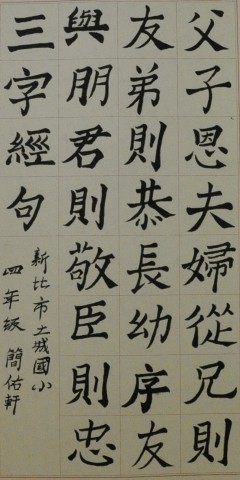 父子恩夫婦從兄則
友弟則恭長幼序友
與朋君則敬臣則忠
三字經句
新北市土城國小
四年級簡佑軒